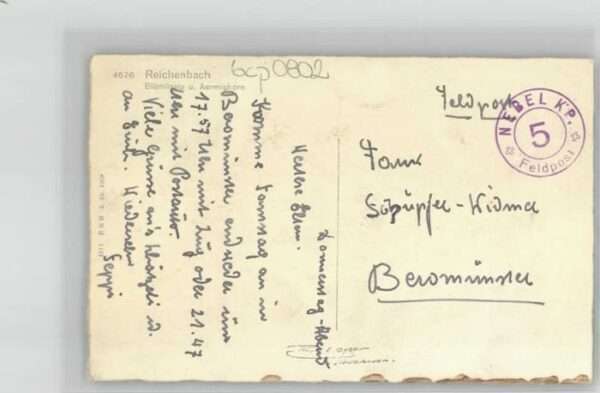 4626 Reichenbach
Blümlisalp u. Aermighorn
bcp0802
Feldpost
NEBEL KP.
5
Feldpost
Fam.
Schüpfer-Widmer
Beromünster
Donnerstag-Abend
Meine Lieben.
Komme Samstag an in
Beromünster entweder um
17.57 Uhr mit Zug oder 21.47
Uhr mit Postauto.
Viele Grüsse
an Euch. Wiedersehen
Seppi